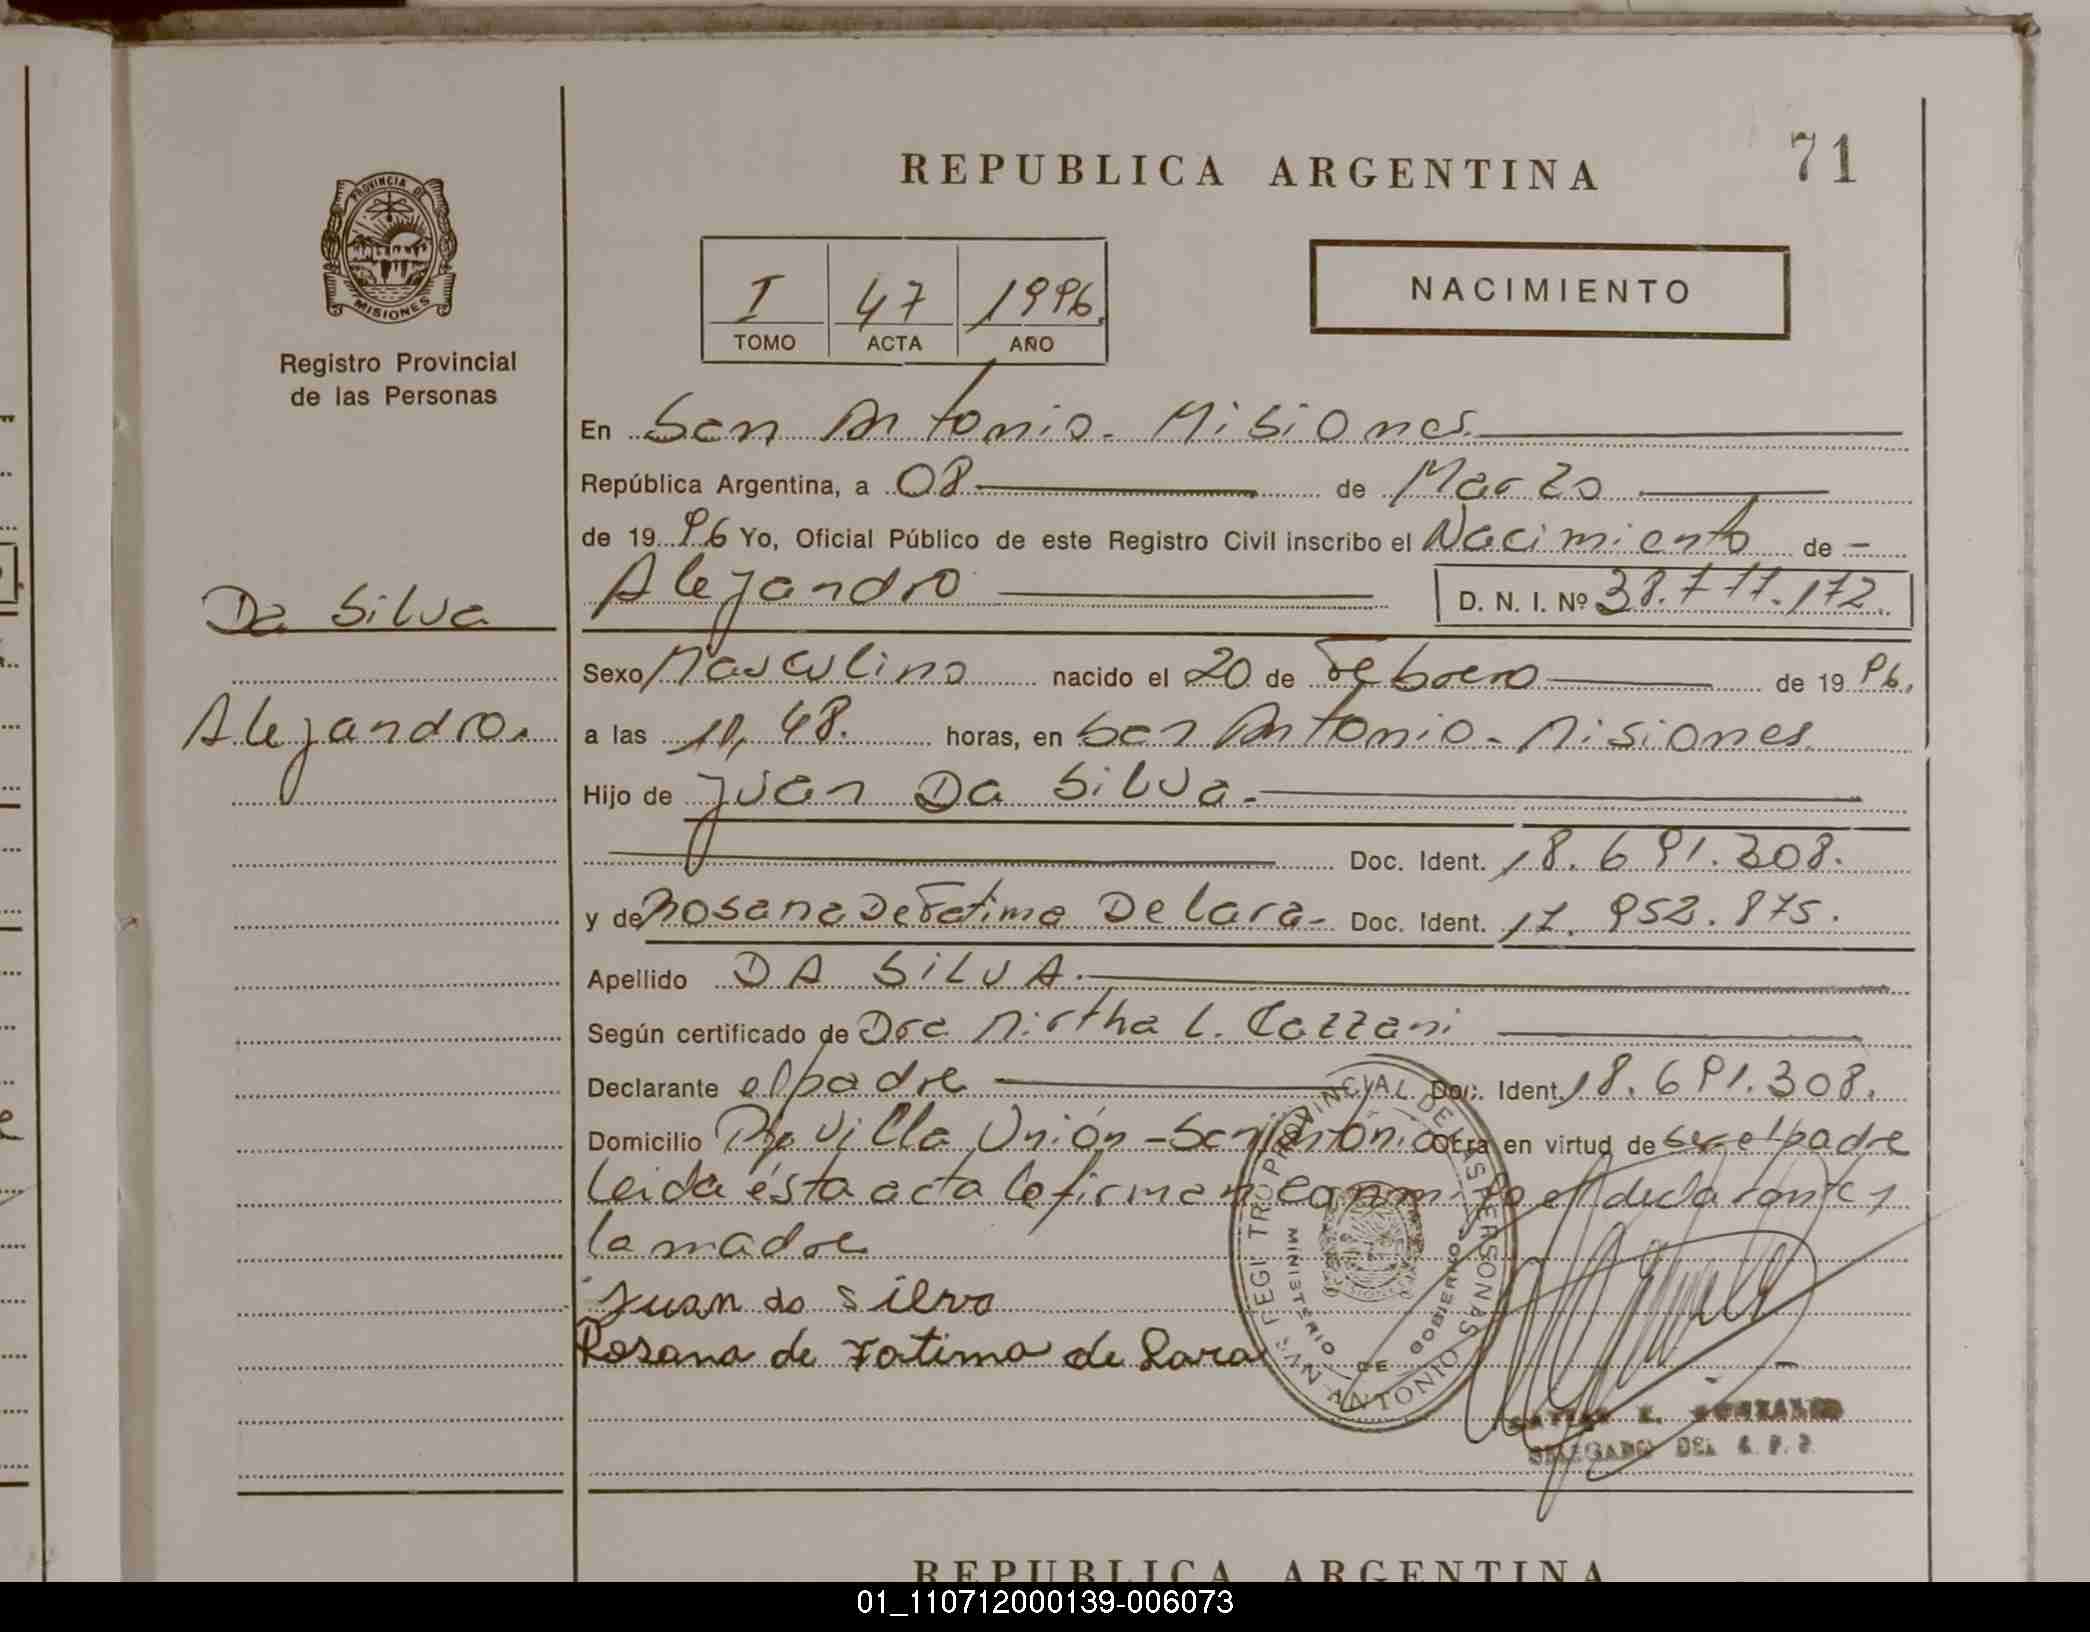 71
REPUBLICA ARGENTINA
PROVINCIA DE
MISIONES
Registro Provincial
de las Personas
NACIMIENTO
I 47 1996.
TOMO ACTA AÑO
En San Antonio - Misiones.
República Argentina, a 08 de Marzo
de 19 96 Yo, Oficial Público de este Registro Civil inscribo el Nacimiento de -
Alejandro D. N. I. Nº 38.777.172.
Da Silva
Alejandro.
Sexo Masculino nacido el 20 de Febrero de 19 96.
a las 10,48. horas, en San Antonio - Misiones
Hijo de Juan Da Silva -
Doc. Ident. 18.691.308.
y de Rosana De Fatima De Lara - Doc. Ident. 17.952.875.
Apellido DA SILVA.
Según certificado de Dra Mirtha L. Cazzani
Declarante el padre Doc. Ident. 18.691.308.
Domicilio Villa Unión - San Antonio Obra en virtud de ser el padre
leida ésta acta la firman conmigo el declarante y
la madre
Juan da silva
Rosana de Fatima de Lara
REGISTRO PROVINCIAL DE LAS PERSONAS
MINISTERIO DE GOBIERNO
SAN ANTONIO
GONZALEZ
DELEGADO DEL R. P. P.
REPUBLICA ARGENTINA
01_110712000139-006073